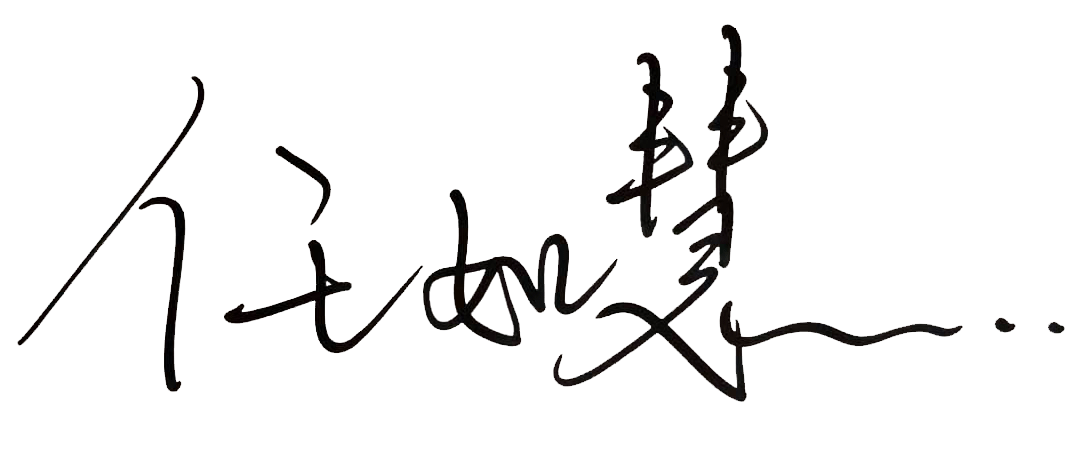 任如慧